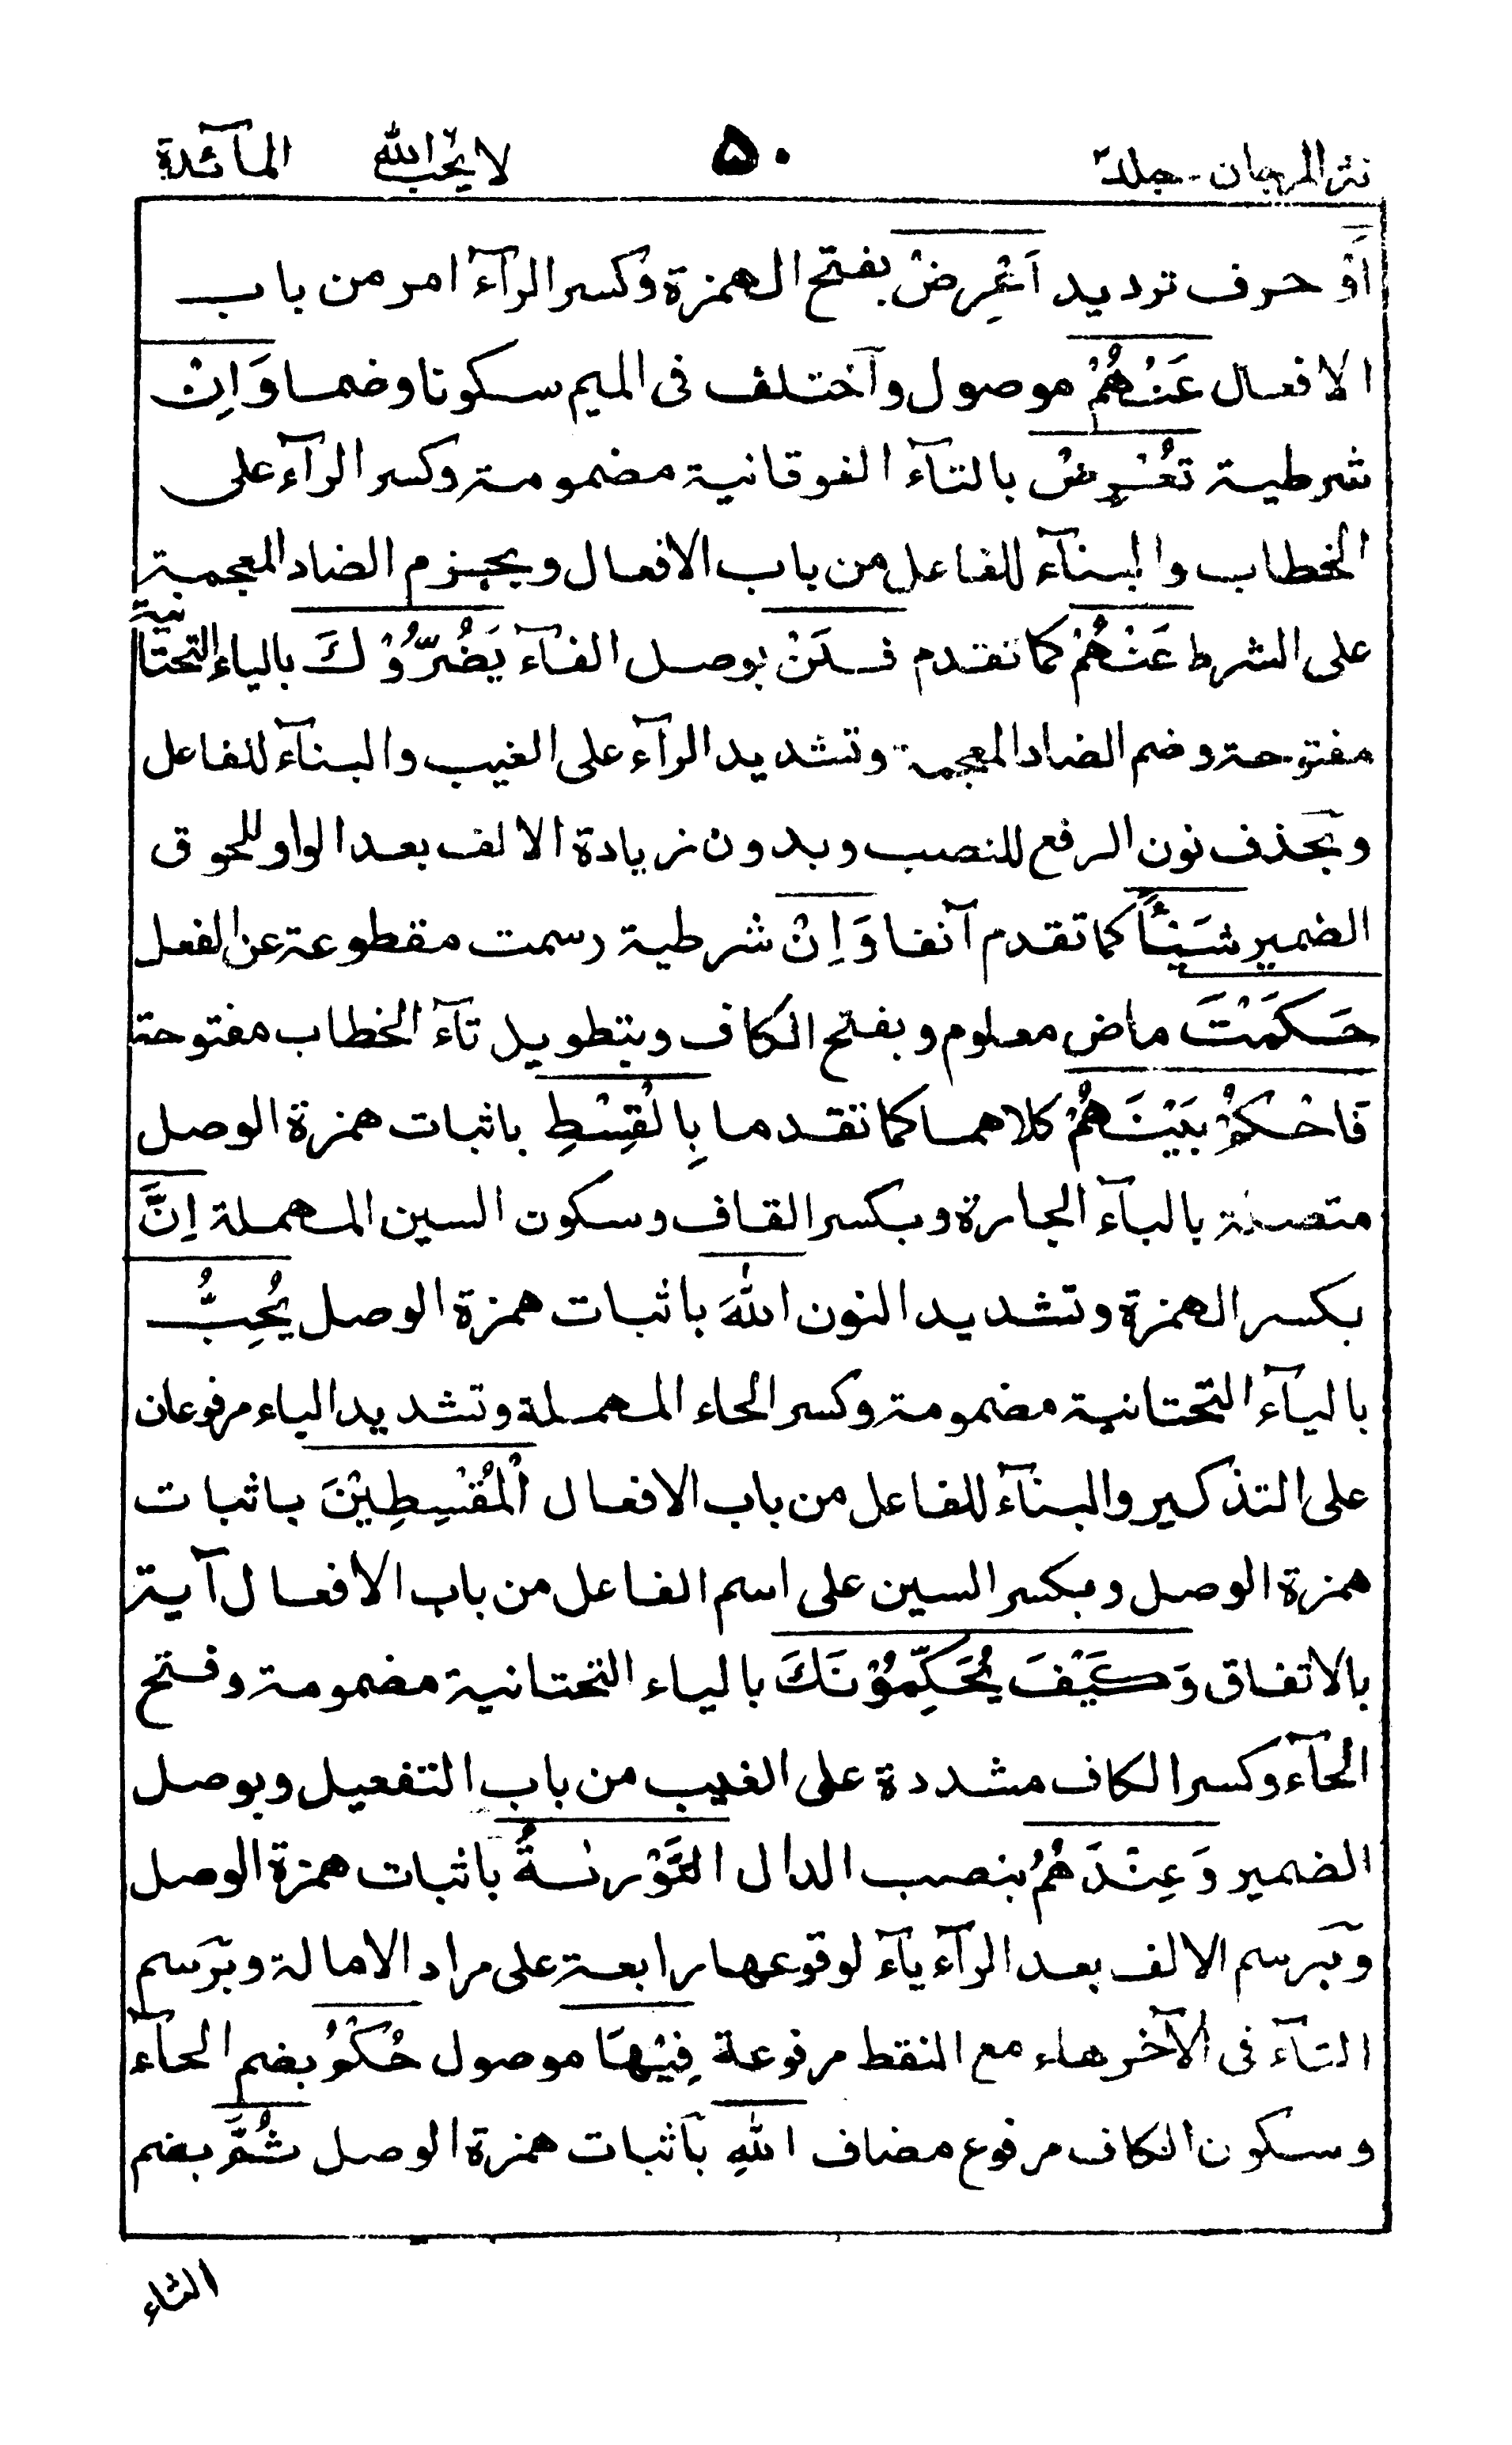 نثر المرجان - جلد٢ ٥٠ لا يحب الله المآئدة
اَوْ حرف ترديد اَعْرِضْ بفتح الهمزة وكسر الرآء امر من باب
الافعال عَنْهُمْ موصول وآختلف فى الميم سكونا وضما وَاِنْ
شرطية تُعْرِضْ بالتآء الفوقانية مضمومة وكسر الرآء على
الخطاب والبنآء للفاعل من باب الافعال وبجزم الضاد المعجمة
على الشرط عَنْهُمْ كما تقدم فَلَنْ بوصل الفآء يَضُرُّوْكَ بالياء التحتانية
مفتوحة وضم الضاد المعجمة وتشديد الرآء على الغيب والبنآء للفاعل
وبحذف نون الرفع للنصب وبدون زيادة الالف بعد الواو للحوق
الضمير شَيْـًٔا كما تقدم آنفا وَاِنْ شرطية رسمت مقطوعة عن الفعل
حَكَمْتَ ماض معلوم وبفتح الكاف وبتطويل تآء الخطاب مفتوحة
فَاحْكُمْ بَيْنَهُمْ كلاهما كما تقدما بِالْقِسْطِ باثبات همزة الوصل
متصلة بالبآء الجارة وبكسر القاف وسكون السين المهملة اِنَّ
بكسر الهمزة وتشديد النون اللهَ باثبات همزة الوصل يُحِبُّ
باليآء التحتانية مضمومة وكسر الحاء المهملة وتشديد الباء مرفوعان
على التذكير والبنآء للفاعل من باب الافعال الْمُقْسِطِيْنَ باثبات
همزة الوصل وبكسر السين على اسم الفاعل من باب الافعال آية
بالاتفاق وَكَيْفَ يُحَكِّمُوْنَكَ بالياء التحتانية مضمومة وفتح
الحآء وكسر الكاف مشددة على الغيب من باب التفعيل وبوصل
الضمير وَعِنْدَهُمُ بنصب الدال التَّوْرٰىةُ باثبات همزة الوصل
وبرسم الالف بعد الرآء يآء لوقوعها رابعة على مراد الامالة وبرسم
التآء فى الآخر هاء مع النقط مرفوعة فِيْهَا موصول حُكْمُ بضم الحآء
وسكون الكاف مرفوع مضاف اللهِ باثبات همزة الوصل ثُمَّ بضم
الثاء